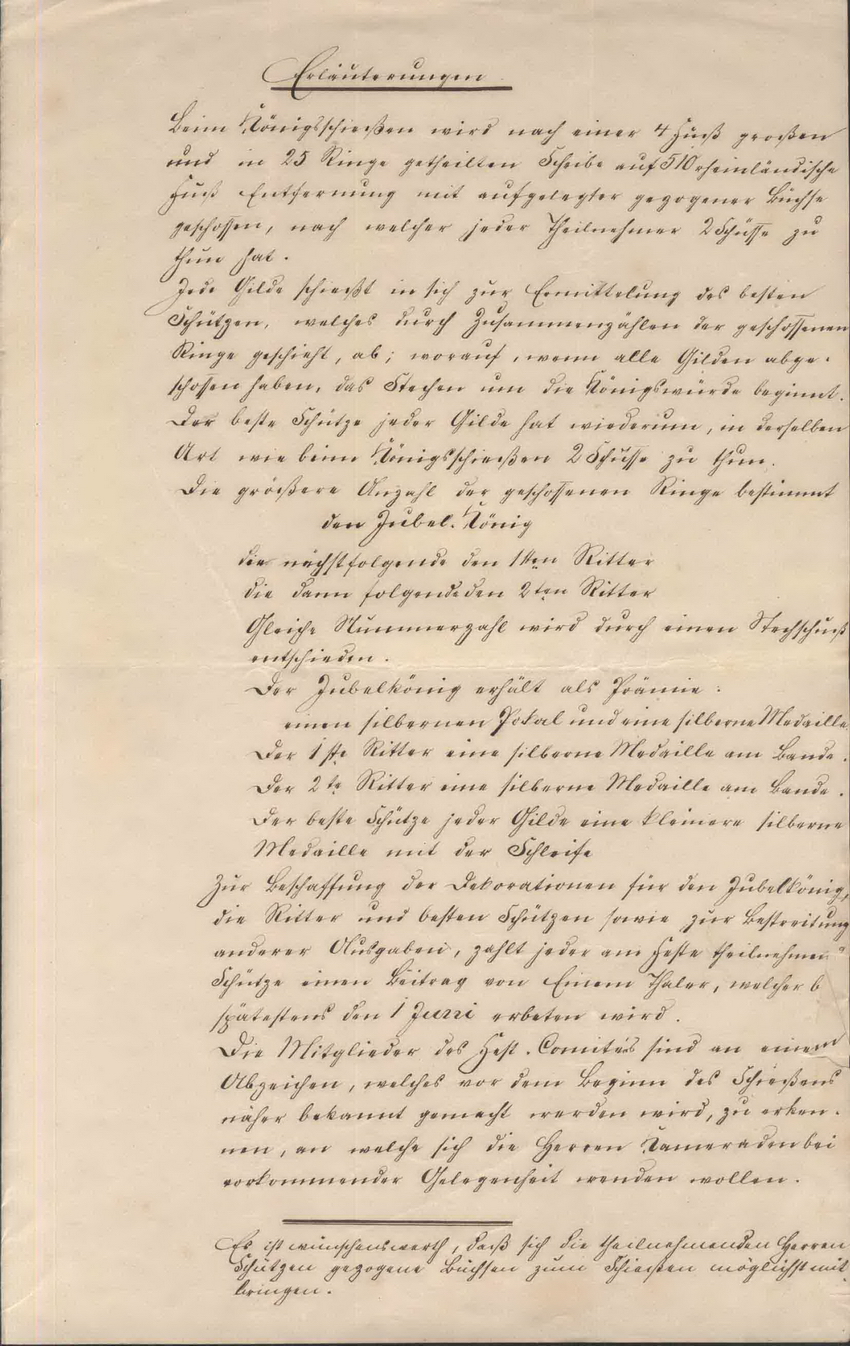 Erläuterungen.
Beim Königsschießen wird nach einer 4 Fuß großen
und in 25 Ringe getheilten Scheibe auf 510 rheinländische
Fuß Entfernung mit aufgelegter gezogener Büchse
geschossen, nach welcher jeder Theilnehmer 2 Schüsse zu
thun hat.
Jede Gilde schießt in sich zur Ermittelung des besten
Schützen, welches durch Zusammenzählen der geschossenen
Ringe geschieht, ab; worauf, wenn alle Gilden abge-
schossen haben, das Stechen um die Königswürde beginnt.
Der beste Schütze jeder Gilde hat wiederum, in derselben
Art wie beim Königsschießen 2 Schüsse zu thun.
Die größere Anzahl der geschossenen Ringe bestimmt
den Jubel-König
die nächstfolgende den 1ten Ritter
die dann folgende den 2ten Ritter
Gleiche Nummerzahl wird durch einen Stechschuß
entschieden.
Der Jubelkönig erhält als Prämie:
einen silbernen Pokal und eine silberne Medaille
Der 1ste Ritter eine silberne Medaille am Bande.
Der 2te Ritter eine silberne Medaille am Bande.
Der beste Schütze jeder Gilde eine kleinere silberne
Medaille mit der Schleife
Zur Beschaffung der Dekorationen für den Jubelkönig,
die Ritter und besten Schützen sowie zur Bestreitung
anderer Ausgaben, zahlt jeder am Feste theilnehmen
Schütze einen Beitrag von Einem Thaler, welcher b
spätestens den 1 Juni erbeten wird.
Die Mitglieder des Fest-Comités sind an einem
Abzeichen, welches vor dem Beginn des Schießens
näher bekannt gemacht werden wird, zu erken-
nen, an welche sich die Herren Kameraden bei
vorkommender Gelegenheit wenden wollen.
Es ist wünschenswerth, daß sich die theilnehmenden Herren
Schützen gezogene Büchsen zum Schießen möglichst mit-
bringen.